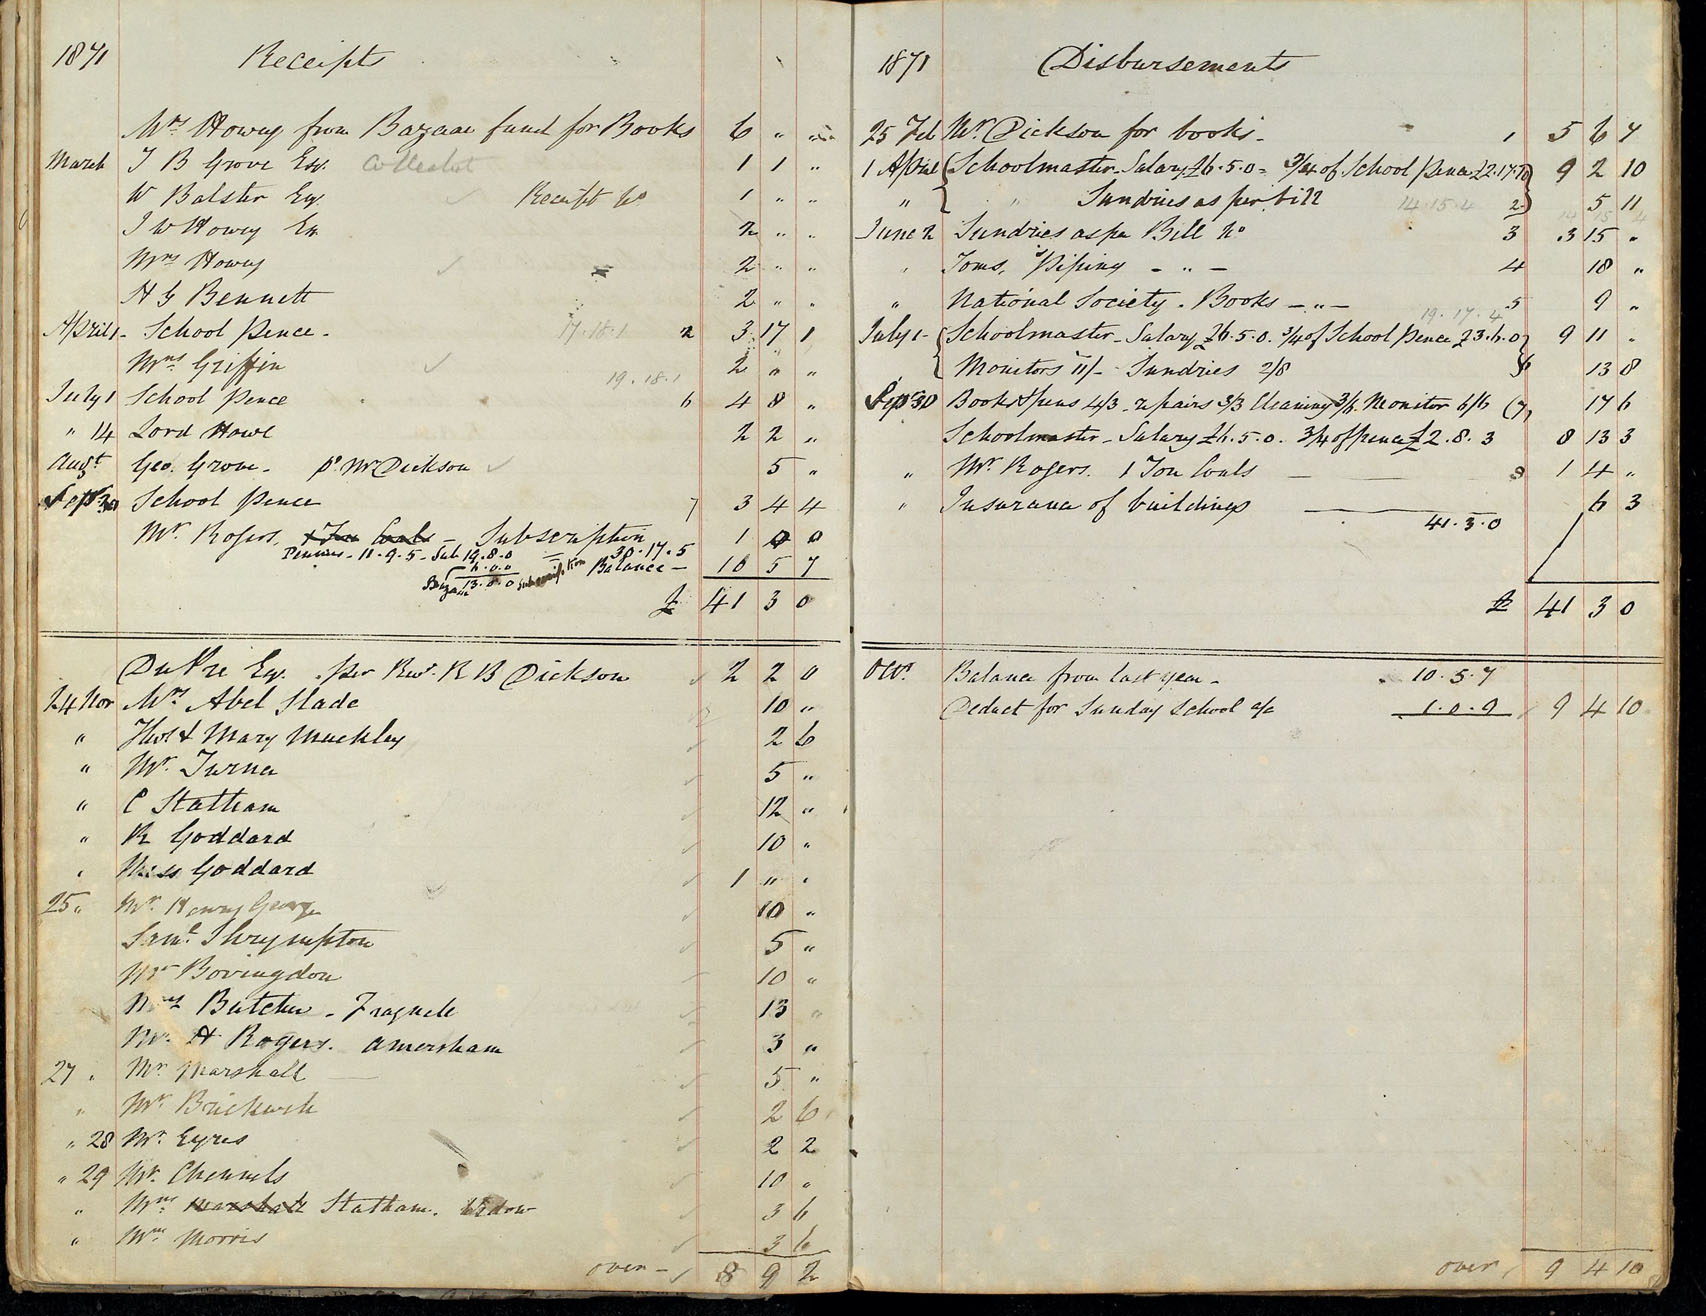 1871 Receipts
Mrs Howey from Bazaar fund for Books 6 " "
March J B Grove Esq. Collected 1 1 "
W Balster Esq. Receipt No 1 " "
J W Howey Esq 2 " "
Mrs Howey 2 " "
H G Bennett 2 " "
April 1 - School Pence - 17.18.1 2 3 17 1
Mrs Griffin 2 " "
19.18.1
July 1 School Pence 6 4 8 "
" 14 Lord Howe 2 2 "
Augt Geo. Grove - pr Mr Dickson 5 "
Sep 30 School Pence 7 3 4 4
Mr Rogers, 1 Ton Coals - Subscription 1 0 0
Pennies - 11.9.5 - Sub 19.8.0 = 30.17.5
6.0.0 Balance - 10 5 7
Bazaar 13.8.0 subscription
£ 41 3 0
DuPre Esq. per Revd. R B Dickson 2 2 0
24 Nov Mrs Abel Slade 10 "
" Thos & Mary Muckley 2 6
" Mr. Turner 5 "
" C Statham 12 "
" R Goddard 10 "
" Miss Goddard 1 " "
25 " Mr. Henry George 10 "
Saml. Shrympton 5 "
Mr Bovingdon 10 "
Mrs Butcher - Fragnell 13 "
Mr. H Rogers. Amersham 3 "
27 " Mr Marshall 5 "
" Mr. Brickwell 2 6
" 28 Mr. Eyres 2 2
" 29 Mr. Chennels 10 "
" Mrs. Marshall Statham. Widow 3 6
" Mrs Morris 3 6
over - 8 9 2
1871 Disbursements
25 Feb Mr. Dickson for books - 1 5 6 7
1 April Schoolmaster - Salary £6.5.0 - 3/4 of School Pence £2.17.10 9 2 10
" " Sundries as per bill 14.15.4 2 5 11
14 15 4
June 2 Sundries as per Bill No 3 3 15 "
" Toms, Piping - " - 4 18 "
" National Society - Books - " - 5 9 "
19.17.4
July 1 - Schoolmaster - Salary £6.5.0. 3/4 of School Pence £3.6.0 9 11 "
Monitors 11/- Sundries 2/8 6 13 8
Sep 30 Books & pens 4/3 - repairs 3/3 Cleaning 3/6. Monitor 6/6 (7) 17 6
Schoolmaster - Salary £6.5.0. 3/4 of pence £2.8.3 8 13 3
" Mr. Rogers. 1 Ton Coals 8 1 4 "
" Insurance of buildings 6 3
41.3.0
£ 41 3 0
Octr. Balance from last year - 10.5.7
Deduct for Sunday School a/c 1.0.9 9 4 10
over 9 4 10